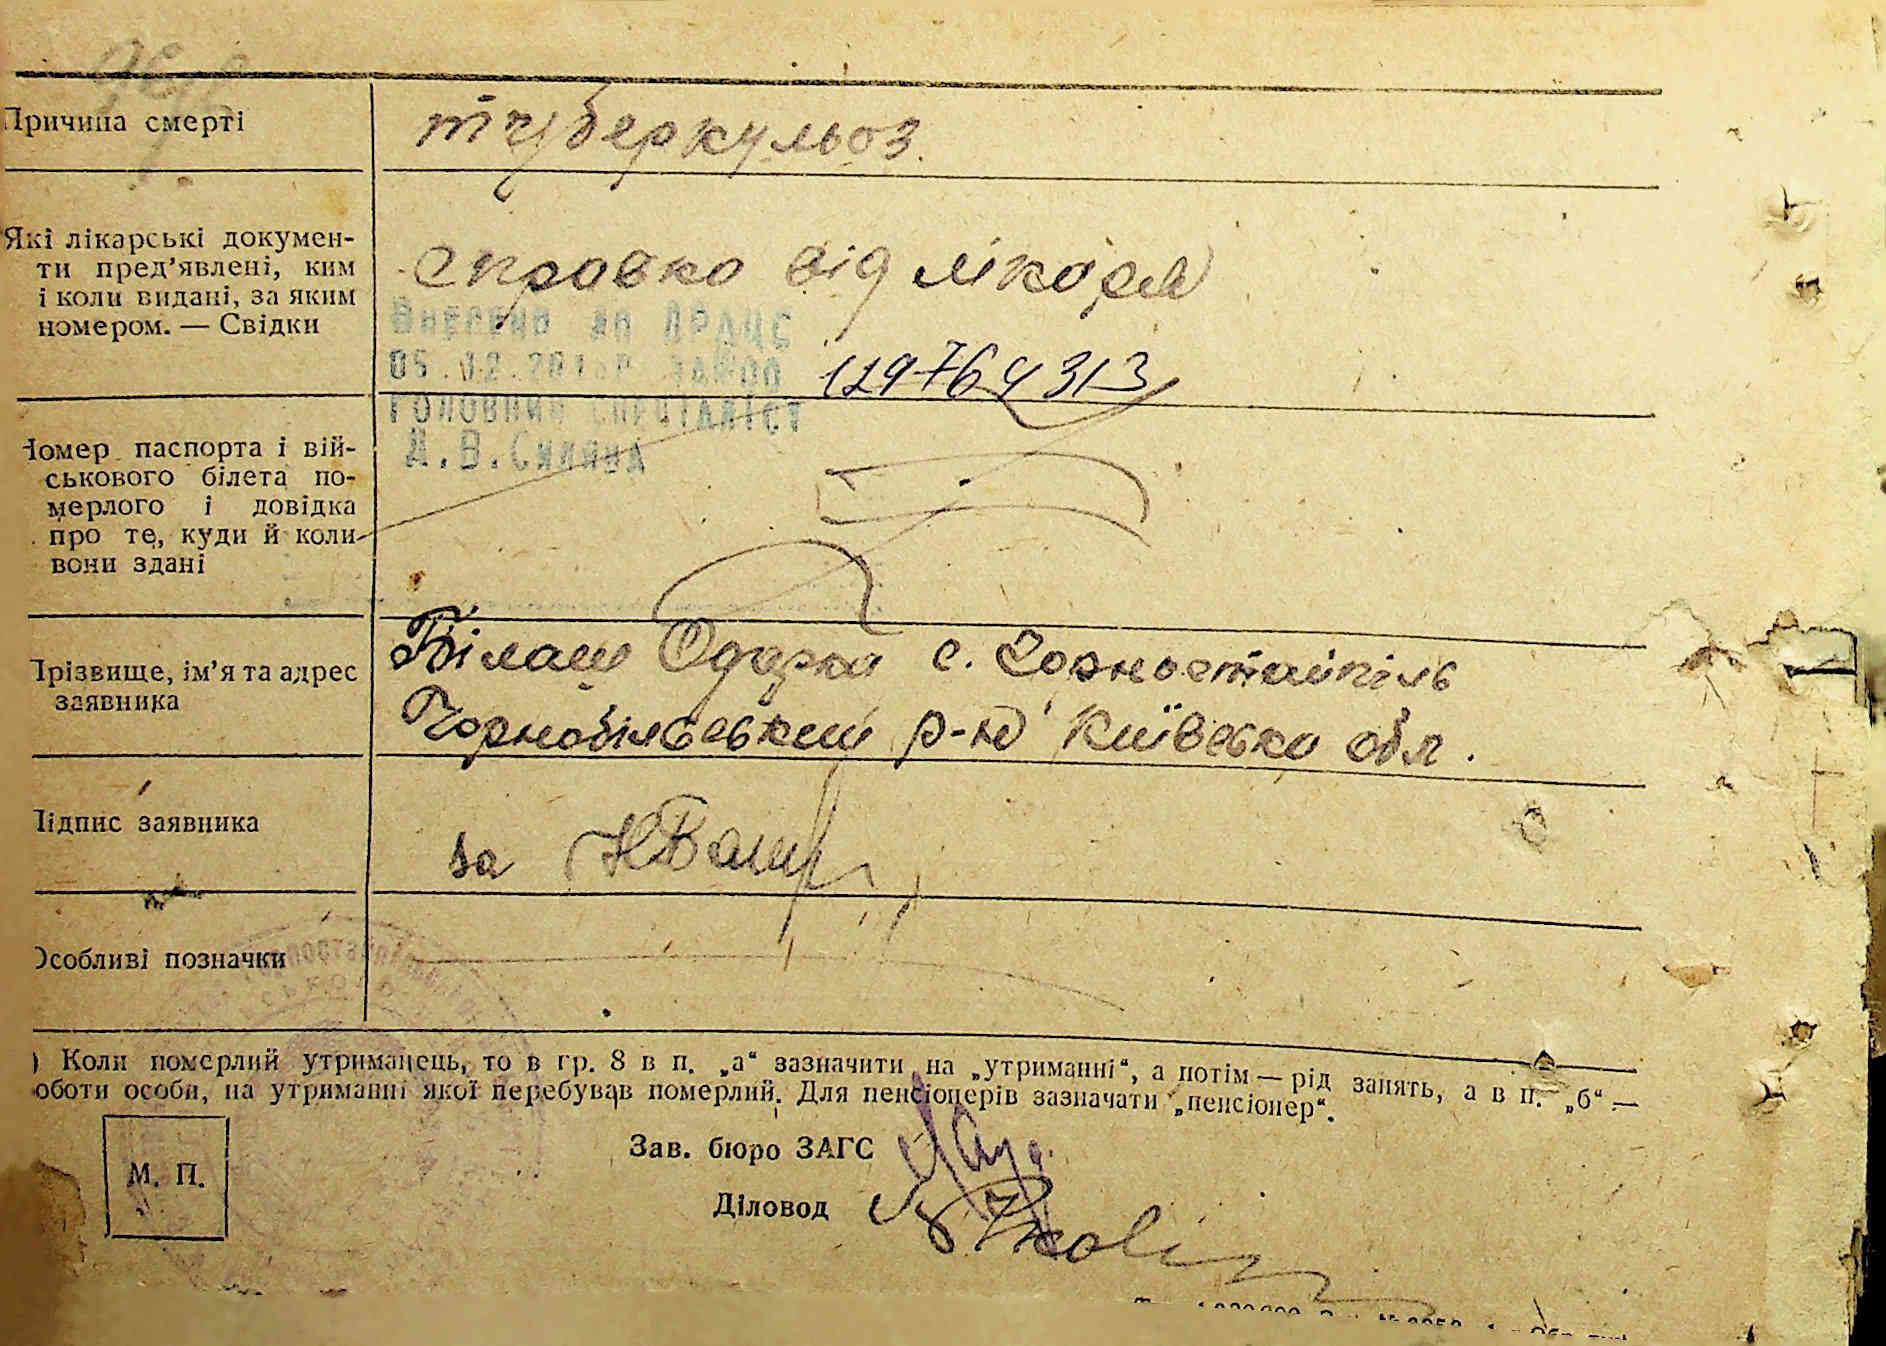 Причина смерті
туберкульоз
Які лікарські докумен-
ти пред’явлені, ким
і коли видані, за яким
номером. — Свідки
справка від лікаря
Внесено до ДРАЦС
05.12.201 р.
129764313
Головний спеціаліст
Номер паспорта і вій-
ськового білета по-
мерлого і довідка
про те, куди й коли
вони здані
Прізвище, ім’я та адрес
заявника
Білаш Одарка с. Горностайпіль
Чорнобільський р-н Київська обл.
Підпис заявника
за
Особливі позначки
) Коли померлий утриманець, то в гр. 8 в п. „а“ зазначити на „утриманні“, а потім — рід занять, а в п. „б“ —
оботи особи, на утриманні якої перебував померлий. Для пенсіонерів зазначати „пенсіонер“.
Зав. бюро ЗАГС
М. П.
Діловод